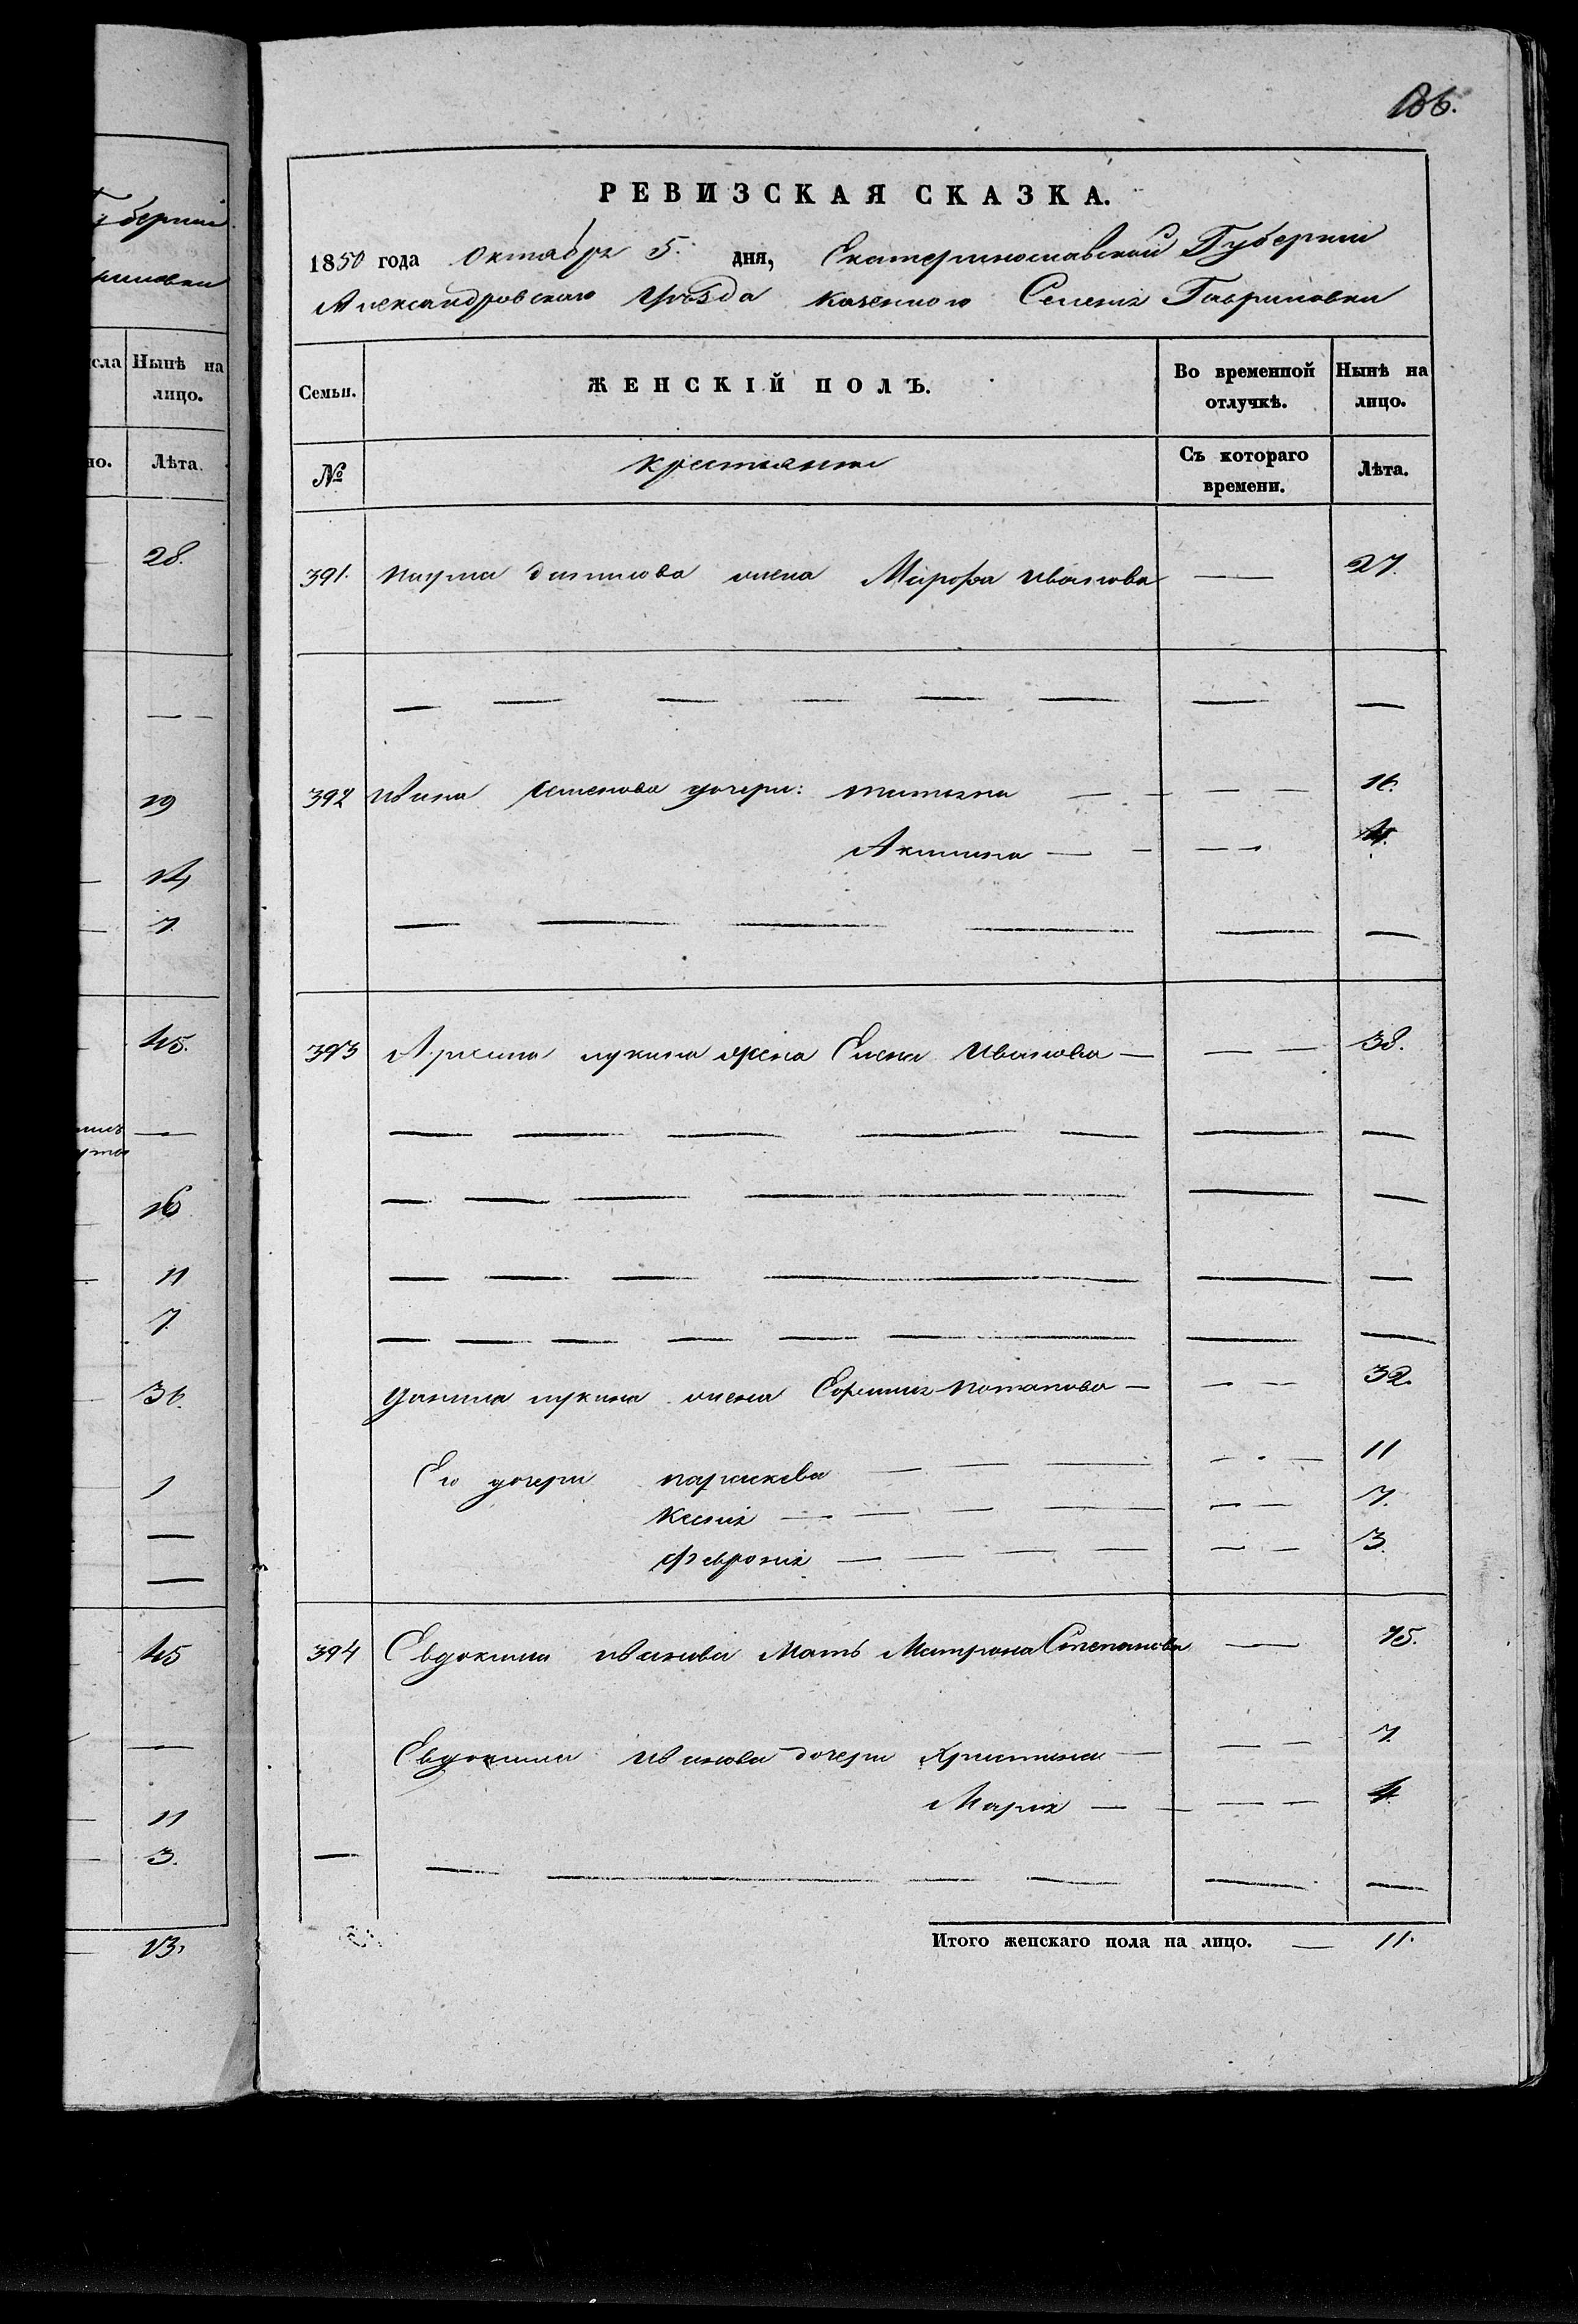 губерніи
сла Нынѣ на
лицо.
но. Лѣта.
28.
19
14
7.
45.
16
11
7.
36.
1
45
11
3.
13.
186.
РЕВИЗСКАЯ СКАЗКА.
1850 года Октября 5. дня, Екатеринославской Губерніи
Александровскаго Уѣзда казеннаго Селенія Гавриловки
Семьи. ЖЕНСКІЙ ПОЛЪ. Во временной отлучкѣ. Нынѣ на лицо.
№ крестьяне Съ котораго времени. Лѣта.
391. Наума данилова жена Марфа иванова — 27.
392 ивана семенова дочери: татьяна — 16.
Акилина —
393 лукина жена Елена иванова — 38.
данила лукина жена Ефимия потапова — 32.
Его дочери параскева — 11
Ксения — 7.
феврония — 3.
394 Евдокима иванова Мать Матрона Степанова — 75.
Евдокима иванова дочери христина — 7.
Мария — 4.
Итого женскаго пола на лицо. — 11.